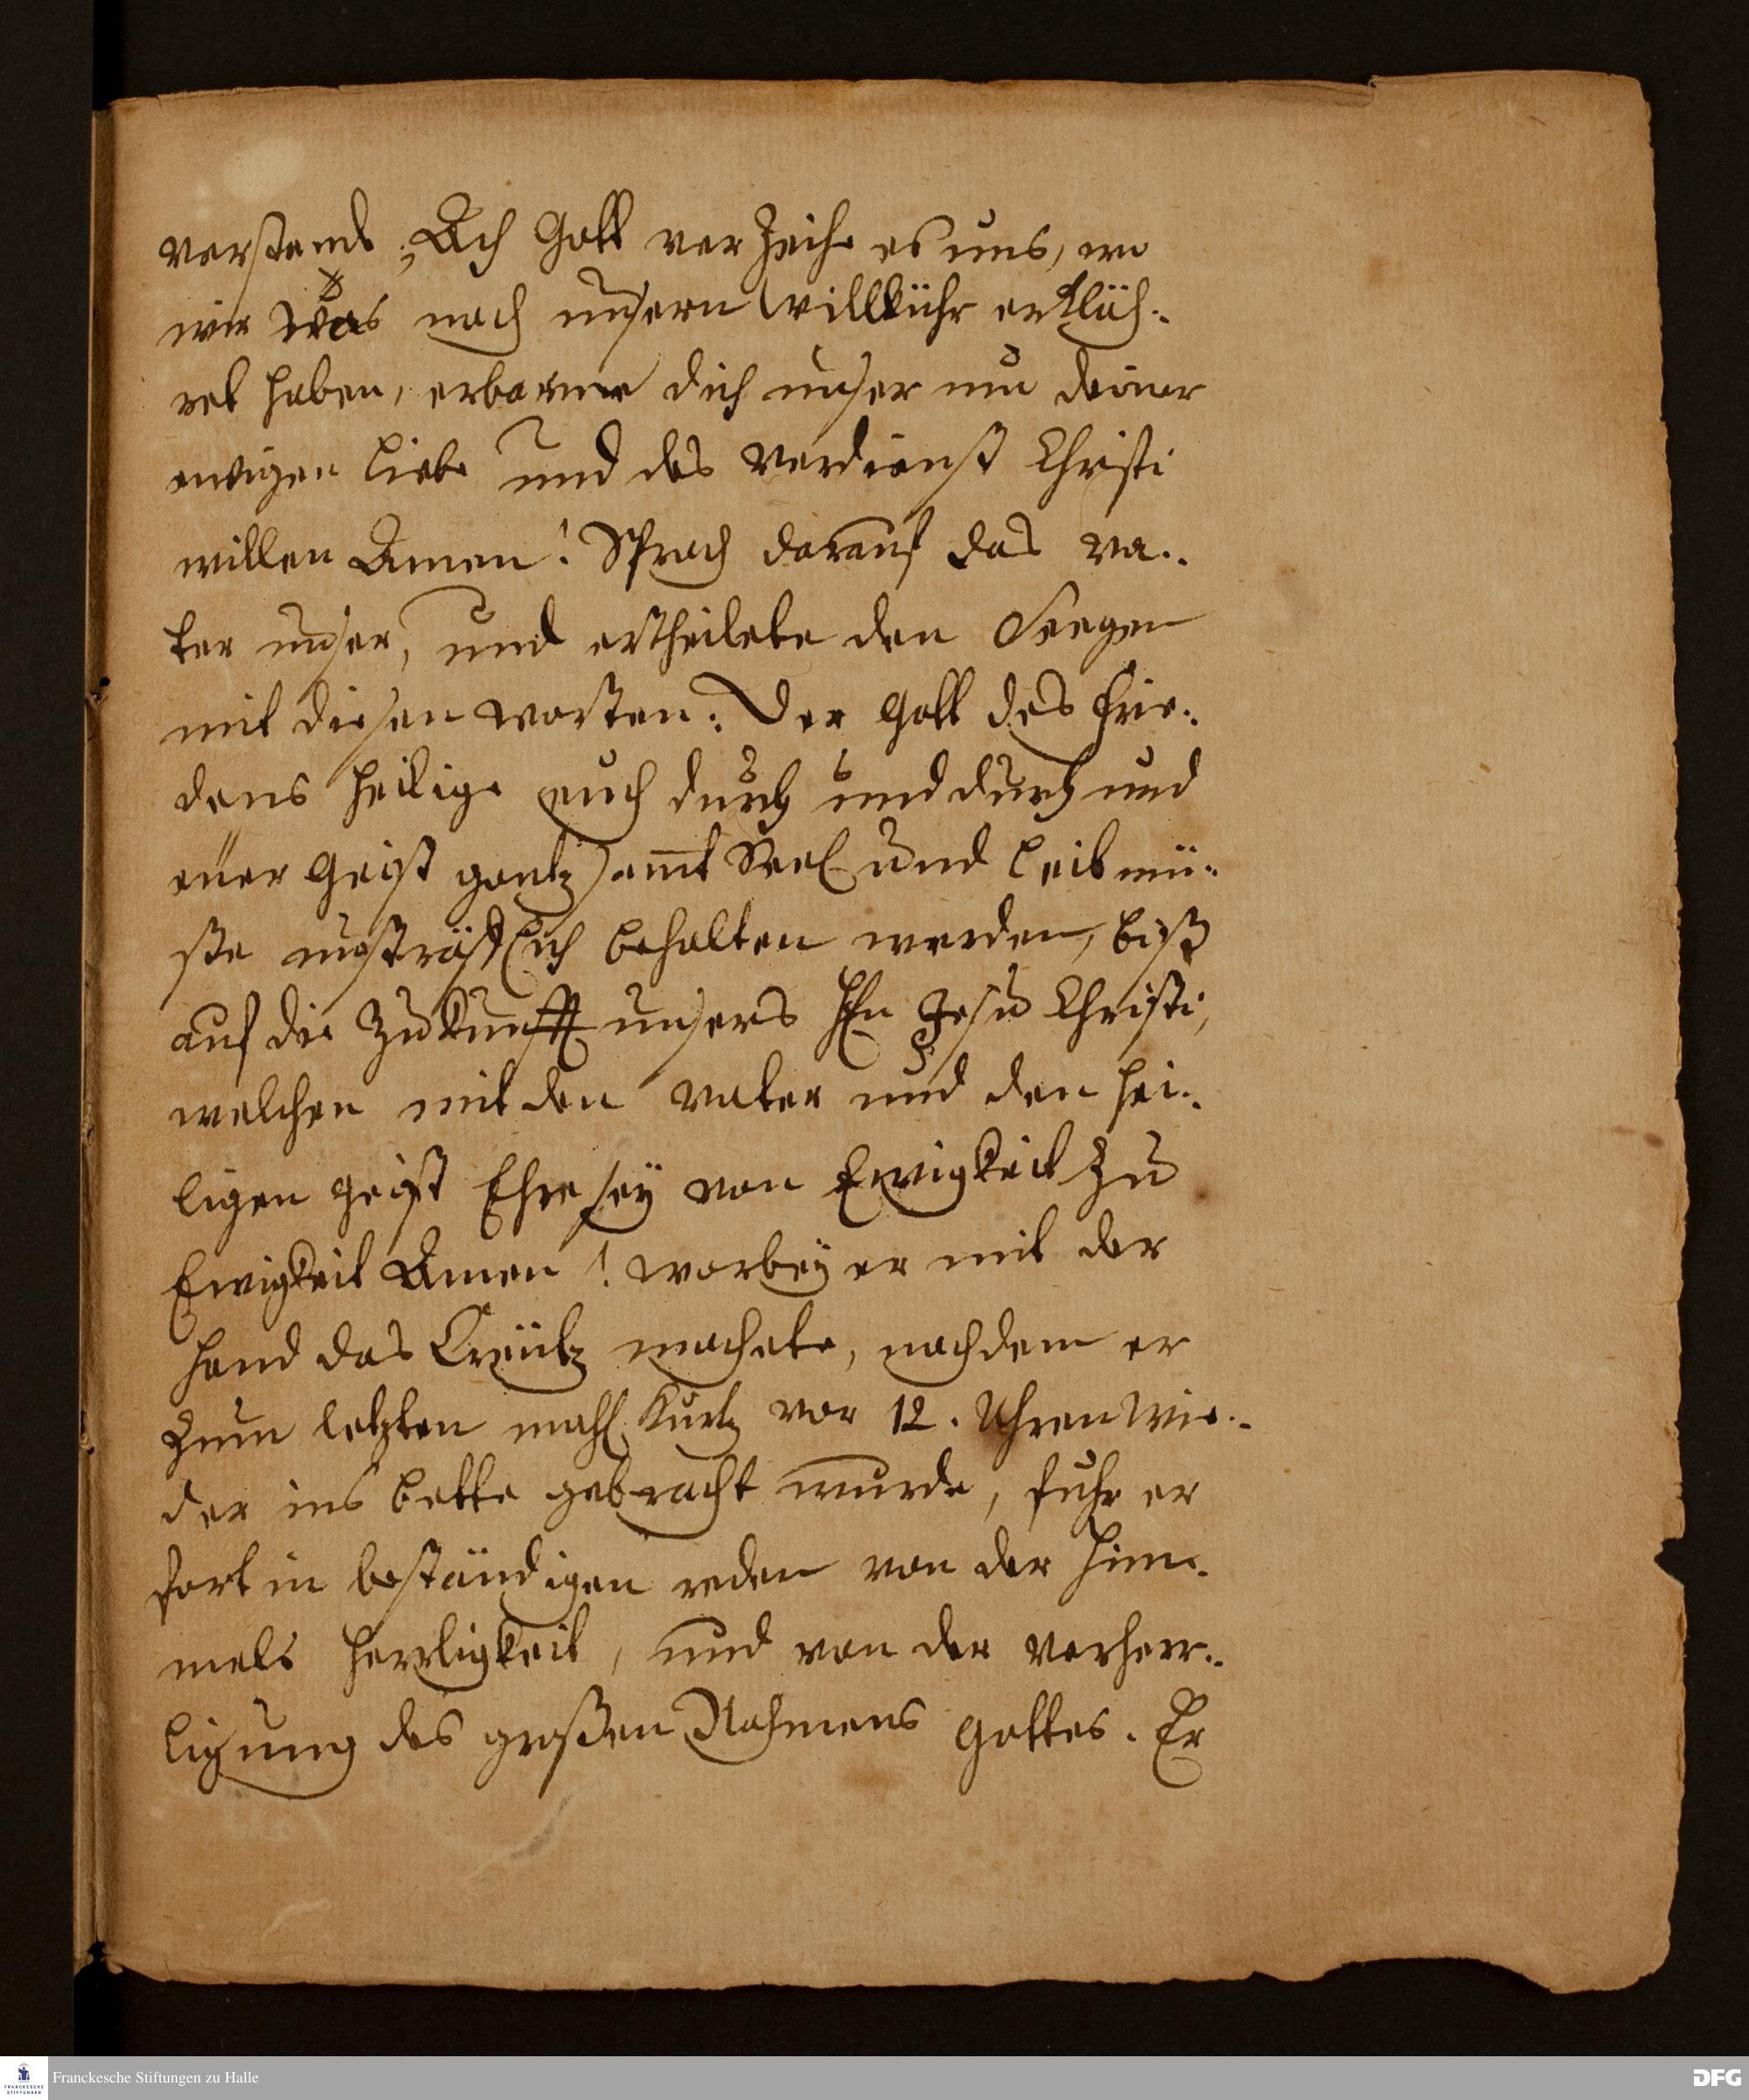 verstand; Ach Gott verzeihe es uns, wo
wir was nach unsern willkühr erkläh-
ret haben, erbarme dich unser um deiner
ewigen liebe und des verdienst Christi
willen Amen! Sprach darauf das va-
ter unser, und ertheilete den Seegen
mit diesen worten: Der Gott des frie-
dens heilige euch durch und durch und
euer Geist gantz samt Seel und leib mü-
ste unsträfflich behalten werden, biß
auf die Zukunfft unsers HEn Jesu Christi,
welchen mit den vater und den hei-
ligen geist Ehre seÿ von Ewigkeit zu
Ewigkeit Amen! worbeÿ er mit der
hand das Creütz machete, nachdem er
zum letzten mahl kurtz vor 12. Uhren wie-
der ins bette gebracht wurde, fuhr er
fort in beständigen reden von der him-
mels herrligkeit, und von der verherr-
ligung des großen Nahmens Gottes. Er
Franckesche Stiftungen zu Halle
DFG